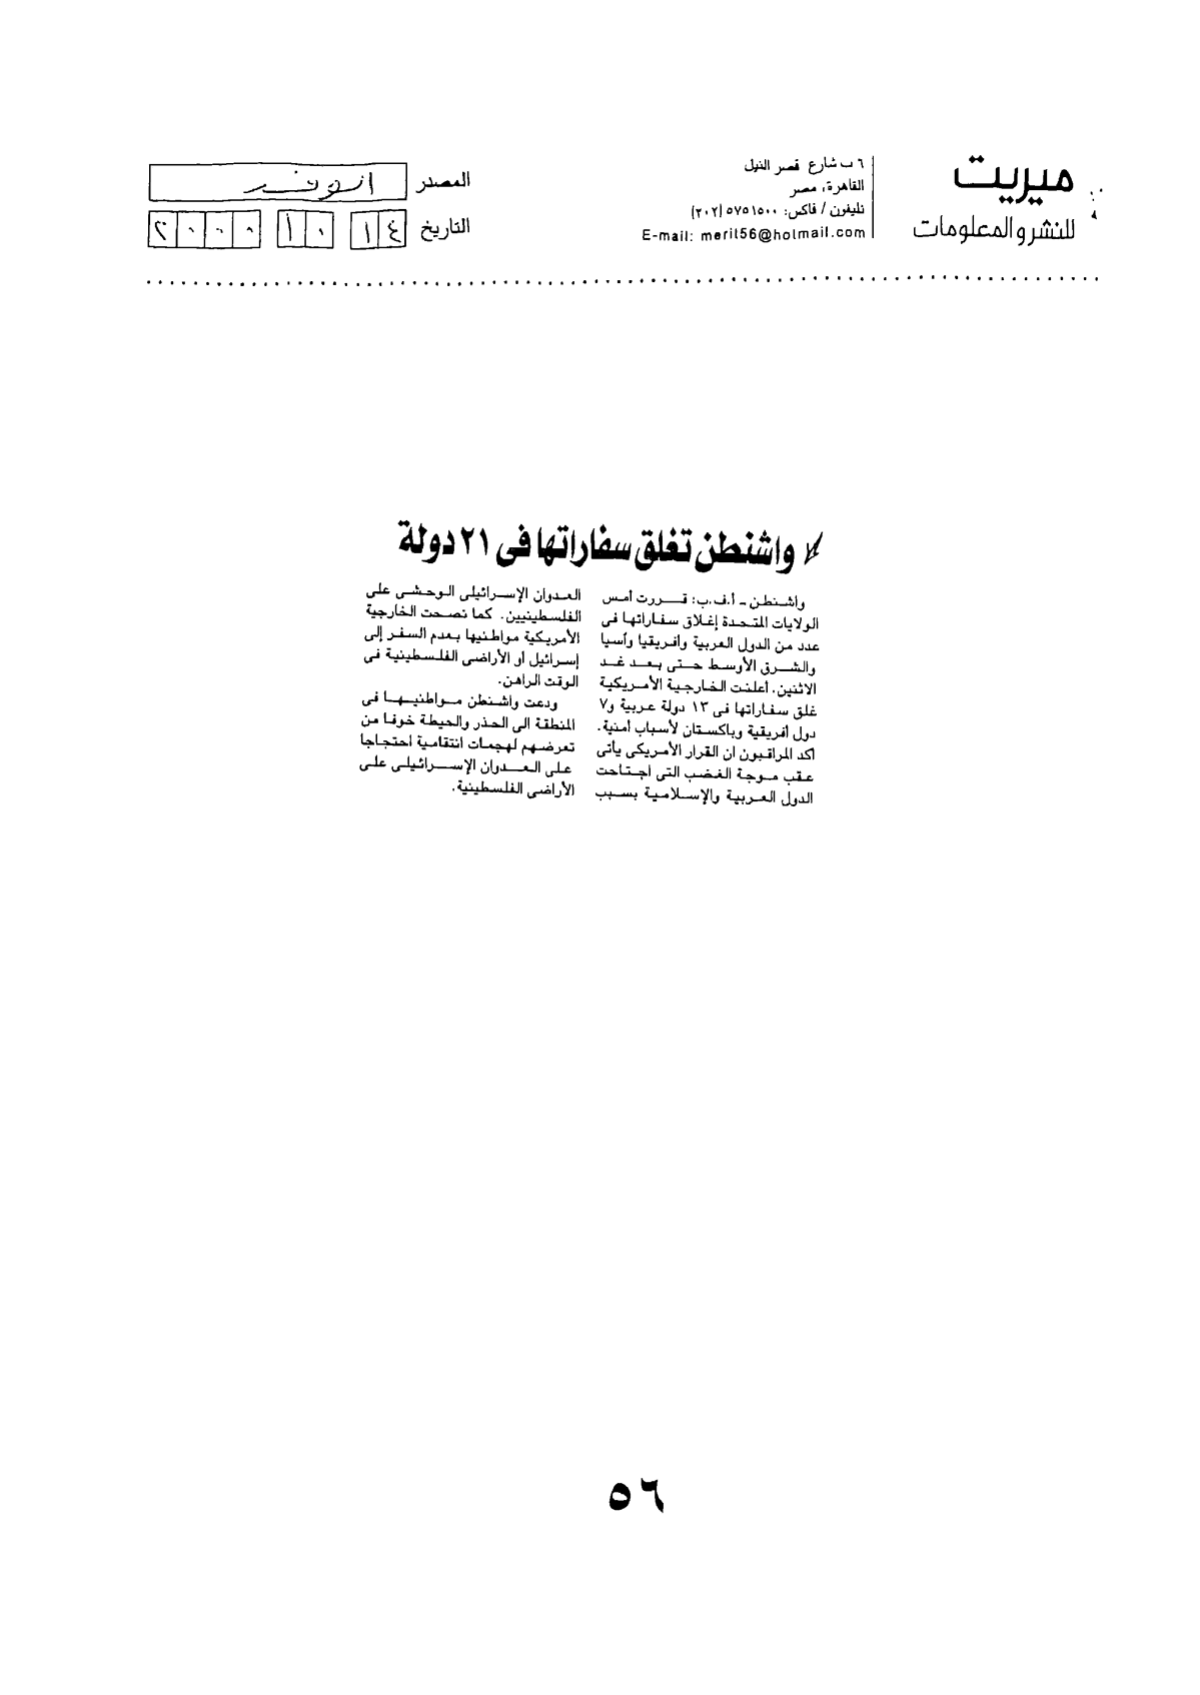 ميريت
للنشر والمعلومات
٦ ب شارع قصر النيل
القاهرة، مصر
تليفون / فاكس: ٥٧٥١٥٠٠ (٢٠٢)
E-mail: merit56@hotmail.com
المصدر الوفد
التاريخ ١٤ ١٠ ٢٠٠٠
واشنطن تغلق سفاراتها فى ٢١ دولة
واشنطن ـ أ.ف.ب: قـررت أمس
الولايات المتحدة إغلاق سفاراتها فى
عدد من الدول العربية وأفريقيا وأسيا
والشرق الأوسط حتى بعد غد
الاثنين. أعلنت الخارجية الأمريكية
غلق سفاراتها فى ١٣ دولة عربية و٧
دول أفريقية وباكستان لأسباب أمنية.
اكد المراقبون ان القرار الأمريكى يأتى
عقب موجة الغضب التى اجتاحت
الدول العربية والإسلامية بسبب
العدوان الإسرائيلى الوحشى على
الفلسطينيين. كما نصحت الخارجية
الأمريكية مواطنيها بعدم السفر إلى
إسرائيل أو الأراضى الفلسطينية فى
الوقت الراهن.
ودعت واشنطن مواطنيها فى
المنطقة الى الحذر والحيطة خوفا من
تعرضهم لهجمات انتقامية احتجاجا
على العدوان الإسرائيلى على
الأراضى الفلسطينية.
٥٦